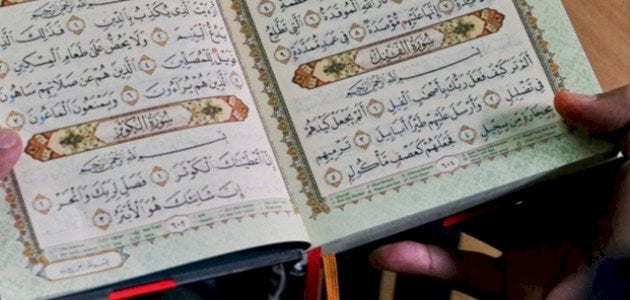 اللَّهِ الْمُوقَدَةُ ٦ الَّتِي تَطَّلِعُ
إِنَّهَا عَلَيْهِم مُّؤْصَدَةٌ ٨ فِي عَمَدٍ مُّمَدَّدَةٍ ٩
سُورَةُ الْفِيلِ
بِسْمِ اللَّهِ الرَّحْمَٰنِ الرَّحِيمِ
أَلَمْ تَرَ كَيْفَ فَعَلَ رَبُّكَ بِأَصْحَابِ الْفِيلِ ١ أَلَمْ يَجْعَلْ كَيْدَهُمْ
فِي تَضْلِيلٍ ٢ وَأَرْسَلَ عَلَيْهِمْ طَيْرًا أَبَابِيلَ ٣ تَرْمِيهِم
بِحِجَارَةٍ مِّن سِجِّيلٍ ٤ فَجَعَلَهُمْ كَعَصْفٍ مَّأْكُولٍ ٥
الَّذِي يُكَذِّبُ بِالدِّينِ ١ فَذَٰلِكَ
الْيَتِيمَ ٢ وَلَا يَحُضُّ عَلَىٰ طَعَامِ الْمِسْكِينِ
فَوَيْلٌ لِّلْمُصَلِّينَ ٤ الَّذِينَ هُمْ عَن صَلَاتِهِمْ سَاهُونَ
الَّذِينَ هُمْ يُرَاءُونَ ٦ وَيَمْنَعُونَ الْمَاعُونَ ٧
سُورَةُ الْكَوْثَرِ
بِسْمِ اللَّهِ الرَّحْمَٰنِ الرَّحِيمِ
إِنَّا أَعْطَيْنَاكَ الْكَوْثَرَ ١ فَصَلِّ لِرَبِّكَ وَانْحَرْ ٢
إِنَّ شَانِئَكَ هُوَ الْأَبْتَرُ ٣